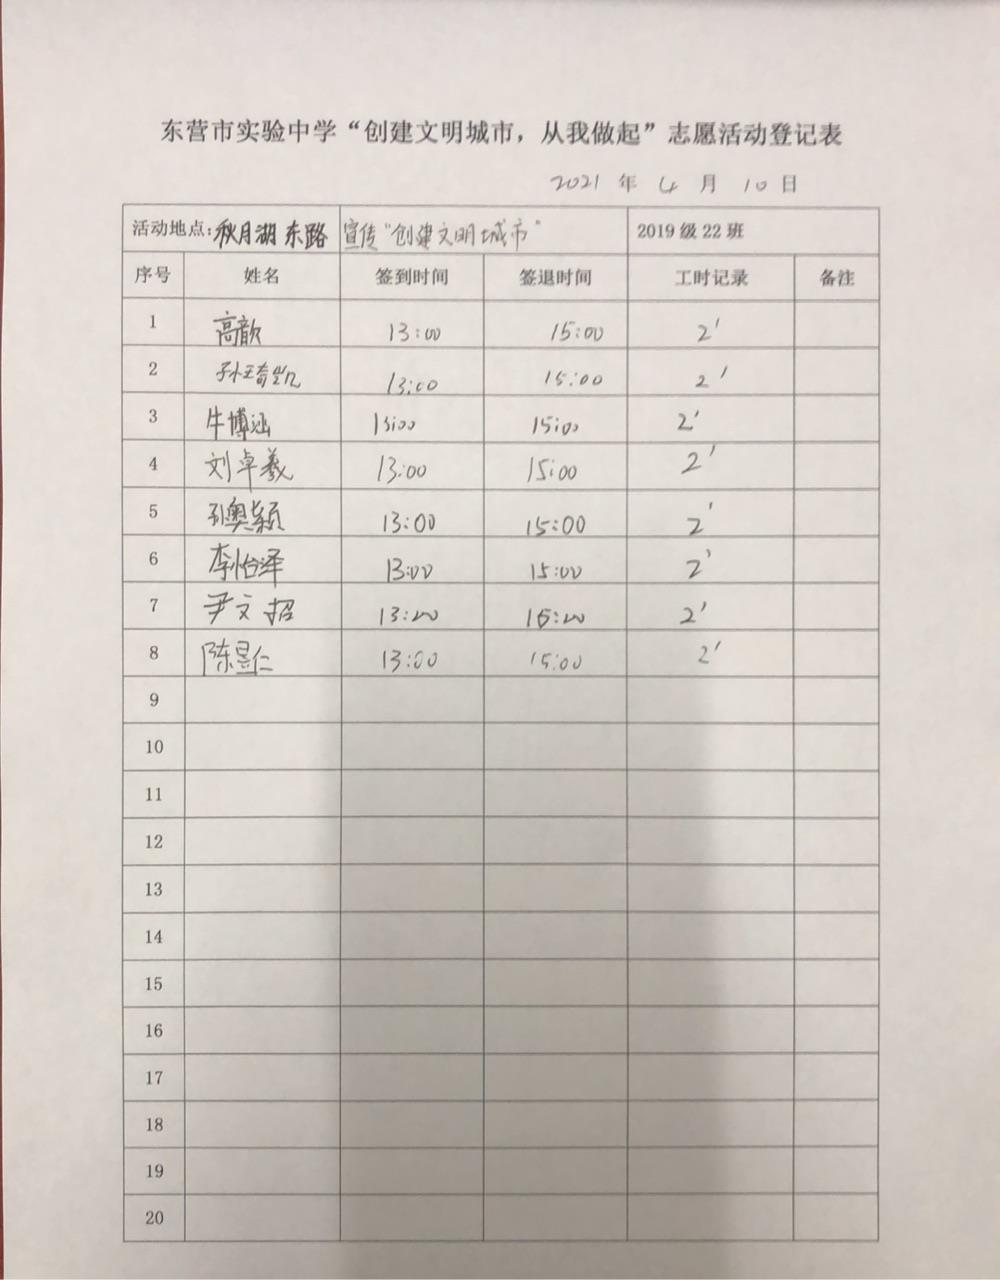 东营市实验中学“创建文明城市，从我做起”志愿活动登记表
2021 年 4 月 10 日
活动地点：秋月湖东路 宣传“创建文明城市” 2019级22班
序号 姓名 签到时间 签退时间 工时记录 备注
1 高歆 13:00 15:00 2'
2 孙琦凯 13:00 15:00 2'
3 牛博涵 13:00 15:00 2'
4 刘卓羲 13:00 15:00 2'
5 孙奥颖 13:00 15:00 2'
6 李怡泽 13:00 15:00 2'
7 尹文招 13:00 15:00 2'
8 陈昱仁 13:00 15:00 2'
9
10
11
12
13
14
15
16
17
18
19
20